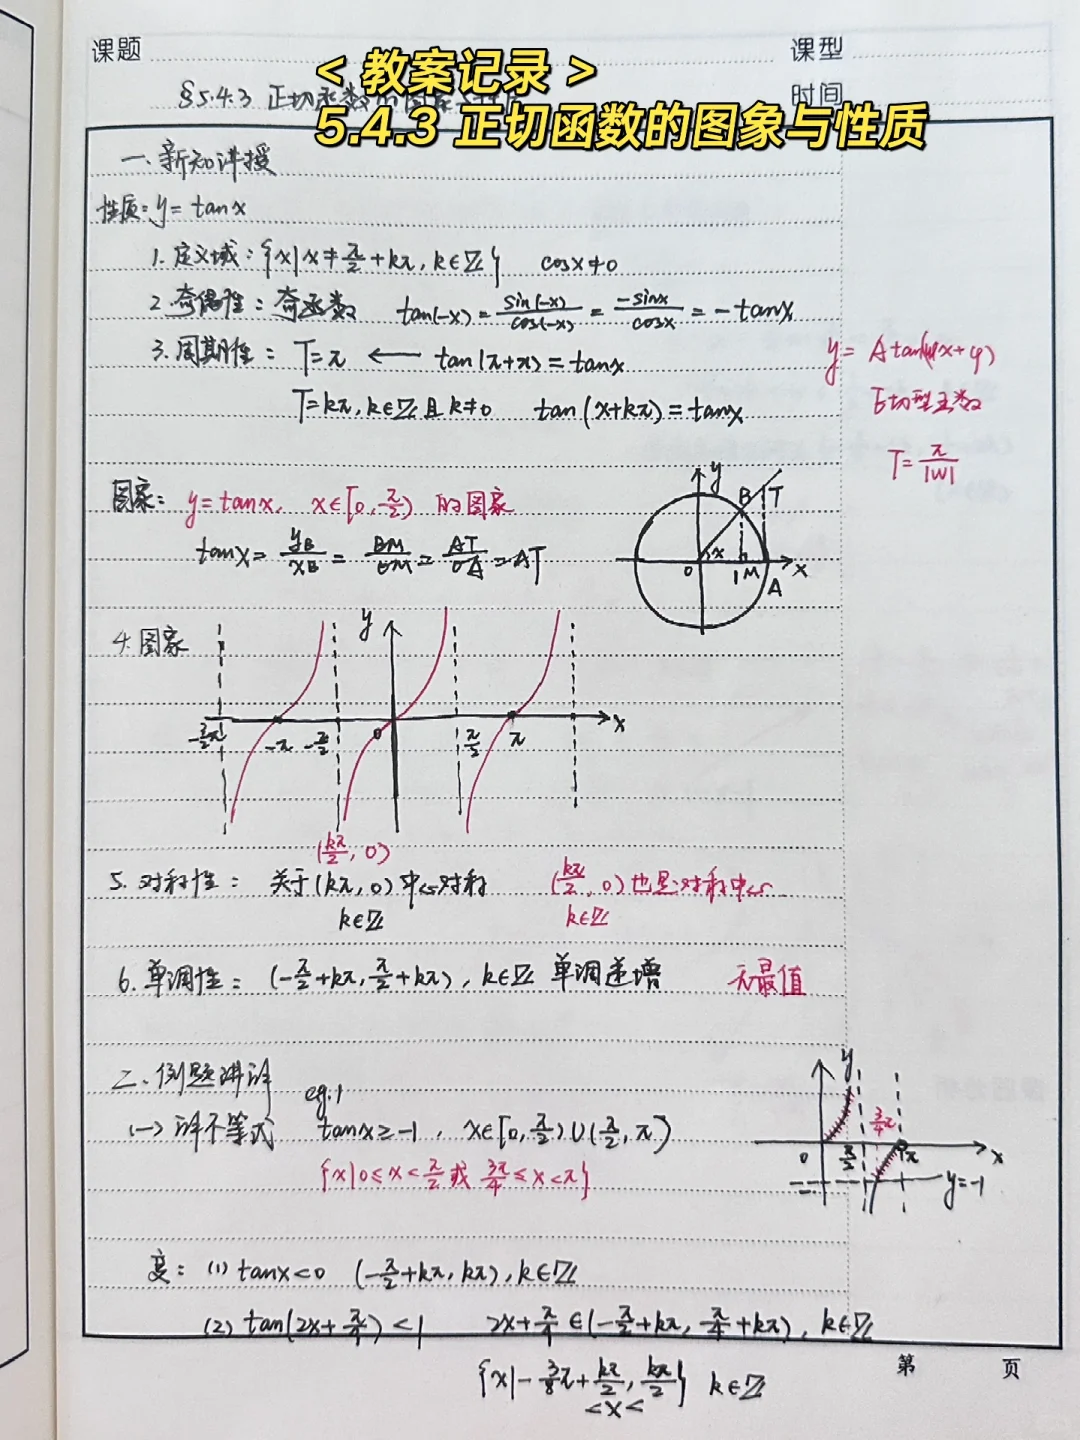 课题
课型
<教案记录>
§5.4.3 正切函数的图象与性质
时间
5.4.3 正切函数的图象与性质
一、新知讲授
性质:y=tanx
1.定义域:{x|x≠π/2+kπ,k∈Z} cosx≠0
2.奇偶性:奇函数 tan(-x)=sin(-x)/cos(-x)=-sinx/cosx=-tanx
3.周期性:T=π ← tan(π+x)=tanx
T=kπ,k∈Z且k≠0 tan(x+kπ)=tanx
y=Atan(ωx+φ)
正切型函数
T=π/|W|
图象:y=tanx, x∈[0,π/2) 的图象
tanx=yB/xB=BM/OM=AT/OA=AT
y B T
O x 1 M A x
4.图象
y
-3/2π -π -π/2 0 π/2 π x
(kπ/2,0)
5.对称性:关于(kπ,0)中心对称 (kπ/2,0)也是对称中心
k∈Z k∈Z
6.单调性:(-π/2+kπ,π/2+kπ),k∈Z 单调递增 无最值
二、例题讲评
eg.1
(一)解不等式 tanx≥-1,x∈[0,π/2)∪(π/2,π)
{x|0≤x<π/2或3π/4≤x<π}
y
3/4π
0 π/2 π x
y=-1
变:(1)tanx<0 (-π/2+kπ,kπ),k∈Z
(2)tan(2x+π/4)<1 2x+π/4∈(-π/2+kπ,π/4+kπ),k∈Z
{x|-3/8π+kπ/2,kπ/2} k∈Z
<x<
第 页